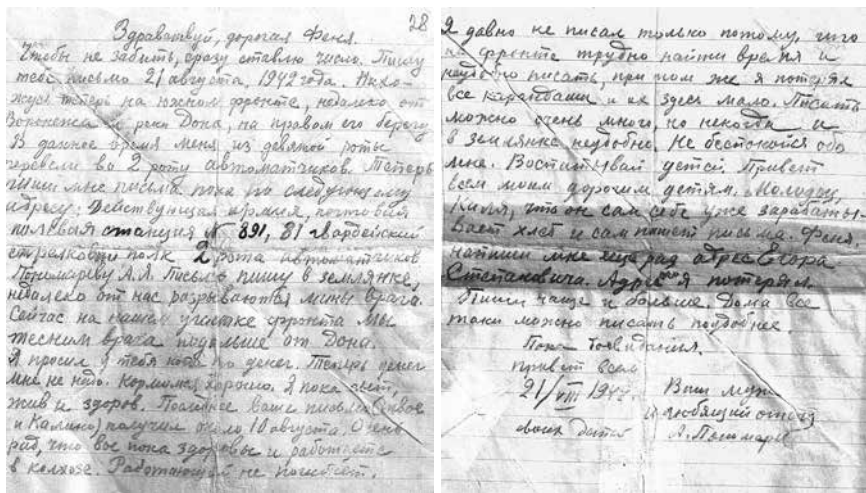 28
Здравствуй, дорогая Феня.
Чтобы не забыть, сразу ставлю число. Пишу
тебе письмо 21 августа, 1942 года. Нахо-
жусь теперь на южном фронте, недалеко от
Воронежа и реки Дона, на правом его берегу
В данное время меня из девятой роты
перевели во 2 роту автоматчиков. Теперь
пиши мне письма пока по следующему
адресу: Действующая армия, почтовая
полевая станция № 891, 81 Гвардейский
стрелковый полк 2 рота автоматчиков
Пономареву А.Л. Письмо пишу в землянке,
недалеко от нас разрываются мины врага.
Сейчас на нашем участке фронта мы
тесним врага подальше от Дона.
Я просил у тебя денег. Теперь денег
мне не надо. Кормят хорошо. Я пока сыт,
жив и здоров. Последнее ваше письмо (твое
и Калино) получил около 10 августа. Очень
рад, что все пока здоровы и работаете
в колхозе. Работающий не погибнет.
Я давно не писал только потому, что
на фронте трудно найти время и
неудобно писать, при том же я потерял
все карандаши и их здесь мало. Писать
можно очень много, но некогда и
в землянке неудобно. Не беспокойся обо
мне. Воспитывай детей. Привет
всем моим дорогим детям. Молодец,
что он сам себе уже зарабаты-
вает хлеб и сам пишет письма. Феня
напиши мне еще раз адрес Егора
Степановича. Адрес я потерял.
Пиши чаще и больше. Дома все
таки можно писать подробнее.
Пока досвиданья.
привет всем
21/VIII 1942. Ваш муж
и любящий отец
своих детей А. Пономарев